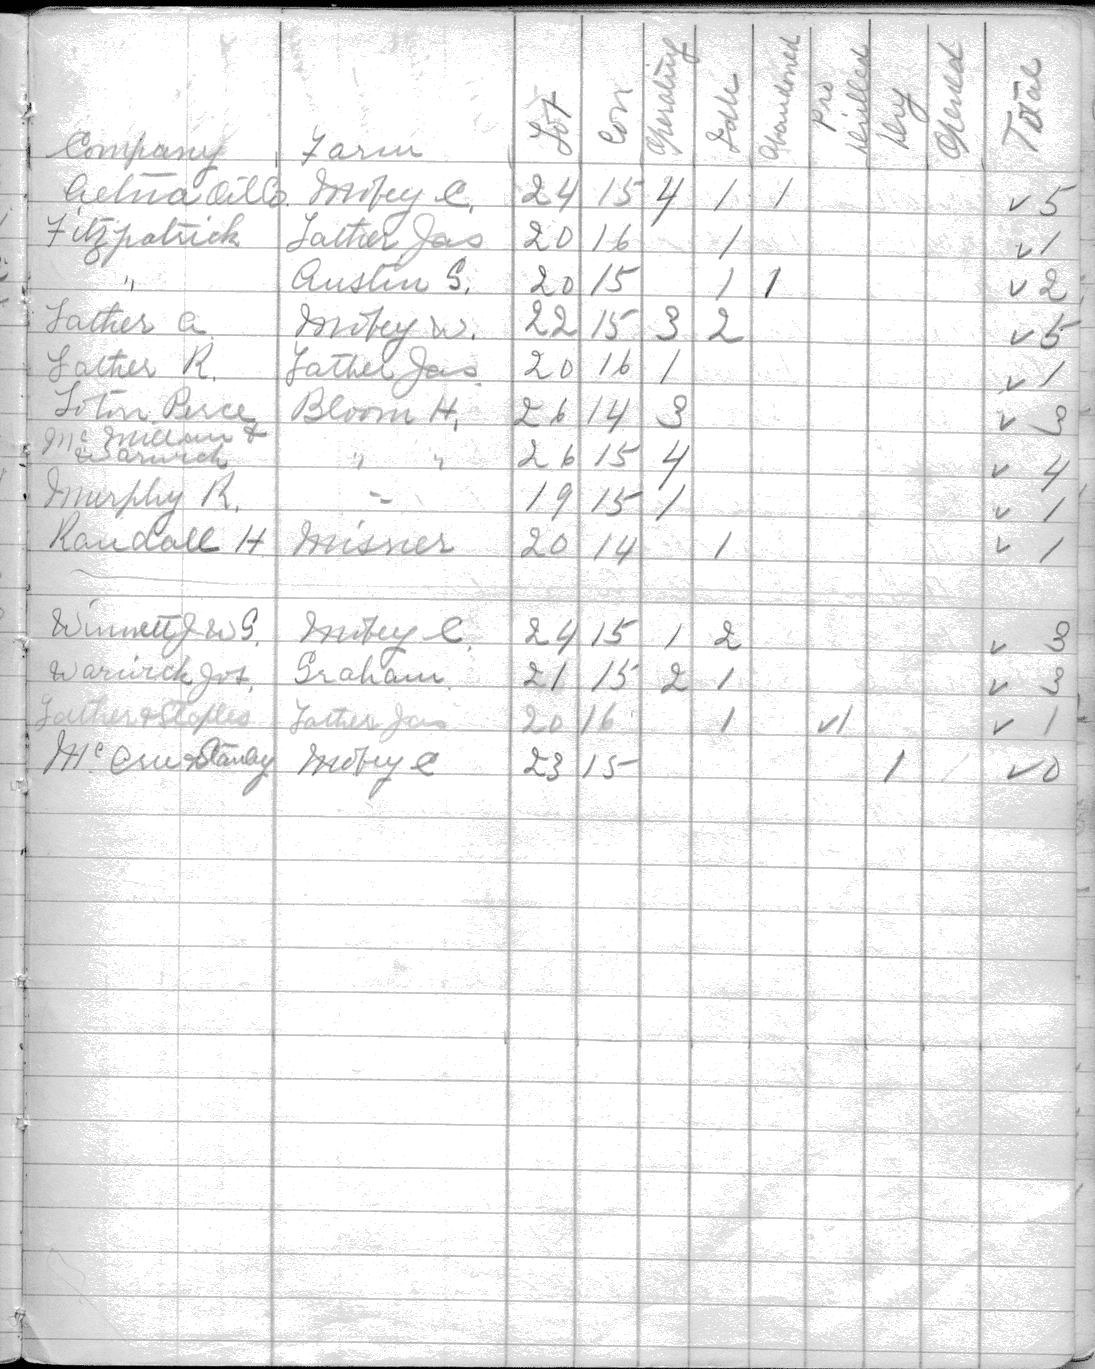 Company Farm Lot Con Operating Idle Abandoned Pro Drilled Dry Opened Total
Aetna Oil Co. Mobey C. 24 15 4 1 1 ✓ 5
Fitzpatrick Lather Jas 20 16 1 ✓ 1
" Austin G. 20 15 1 1 ✓ 2
Lather A. Mobey W. 22 15 3 2 ✓ 5
Lather R. Lather Jas 20 16 1 ✓ 1
Bloom H. 26 14 3 ✓ 3
McMillan &
Warwick " " 26 15 4 ✓ 4
Murphy R. " 19 15 1 ✓ 1
Randall H Misner 20 14 1 ✓ 1
Winnett J W G. Mobey C. 24 15 1 2 ✓ 3
Warwick Jos. Graham 21 15 2 1 ✓ 3
Lather & Staples Lather Jas 20 16 1 ✓ 1 ✓ 1
Mobey C 23 15 1 1 ✓ 0